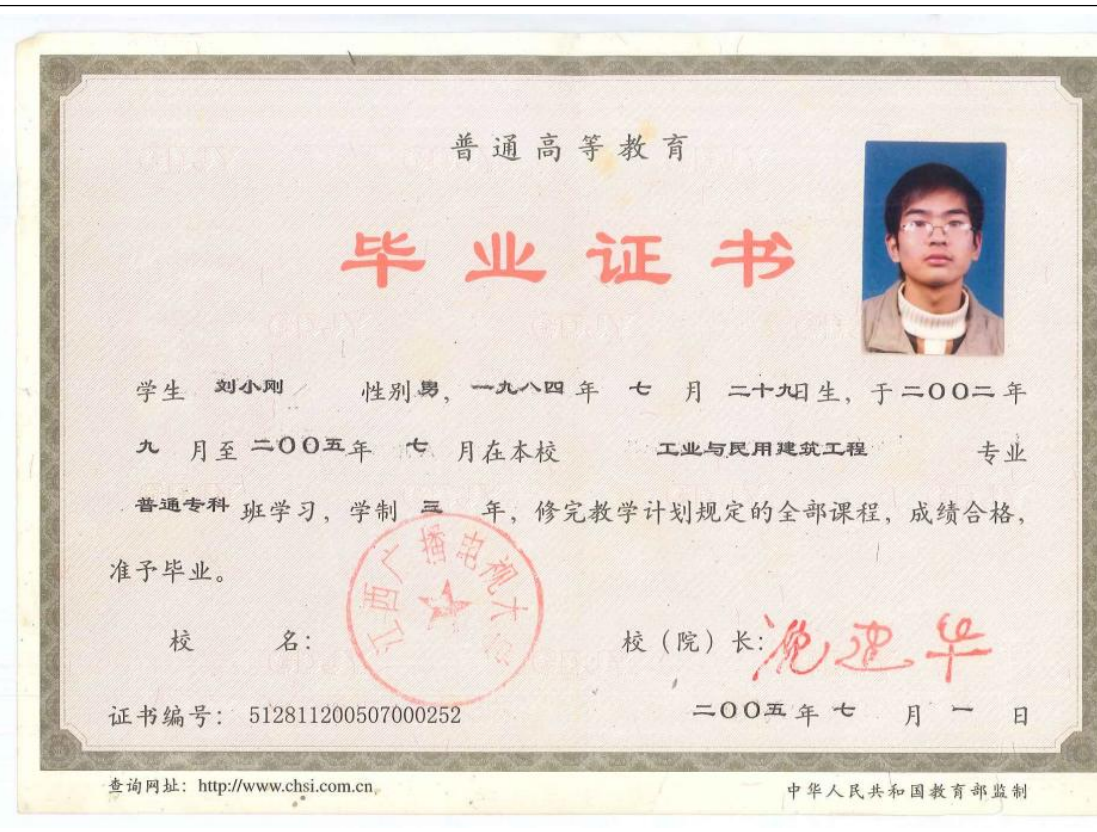 普通高等教育
毕业证书
学生 刘小刚 性别 男, 一九八四 年 七 月 二十九日生, 于 二〇〇二 年
九 月至 二〇〇五 年 七 月在本校 工业与民用建筑工程 专业
普通专科 班学习, 学制 三 年, 修完教学计划规定的全部课程, 成绩合格,
准予毕业。
江西广播电视大学
校 名: 校（院）长:
证书编号: 512811200507000252 二〇〇五 年 七 月 一 日
查询网址: http://www.chsi.com.cn 中华人民共和国教育部监制